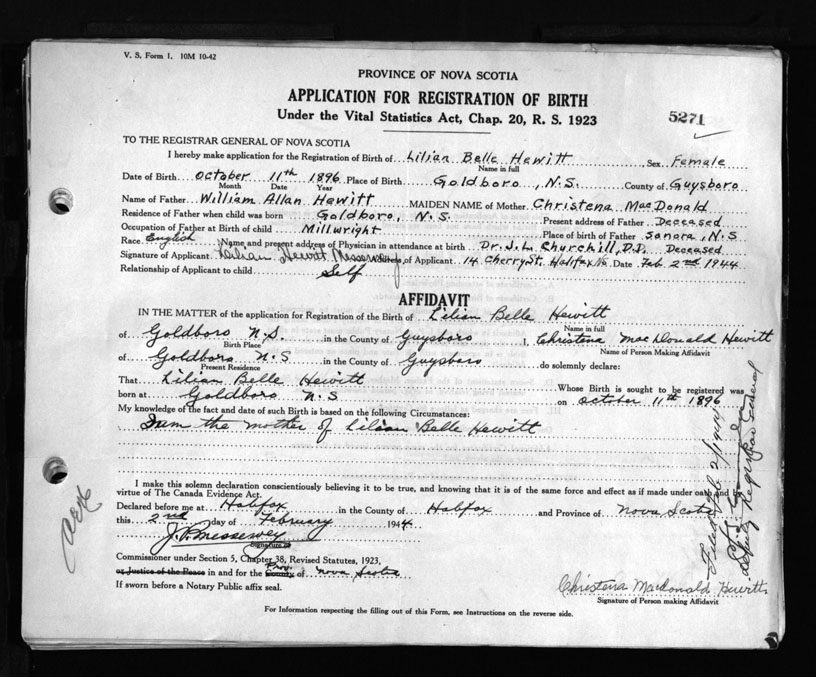 V. S. Form 1. 10M 10-42
PROVINCE OF NOVA SCOTIA
APPLICATION FOR REGISTRATION OF BIRTH
Under the Vital Statistics Act, Chap. 20, R. S. 1923
5271
TO THE REGISTRAR GENERAL OF NOVA SCOTIA
I hereby make application for the Registration of Birth of Lilian Belle Hewitt Sex Female
Name in full
Date of Birth October 11th 1896 Place of Birth Goldboro, N.S. County of Guysboro
Month Date Year
Name of Father William Allan Hewitt MAIDEN NAME of Mother Christena MacDonald
Residence of Father when child was born Goldboro, N.S. Present address of Father Deceased
Occupation of Father at Birth of child Millwright Place of birth of Father Sonora, N.S
Race English Name and present address of Physician in attendance at birth Dr. J. L. Churchill, D.D. Deceased
Signature of Applicant Lilian Hewitt Messervey Address of Applicant 14 Cherry St. Halifax NS Date Feb 2nd 1944
Relationship of Applicant to child Self
AFFIDAVIT
IN THE MATTER of the application for Registration of the Birth of Lilian Belle Hewitt
Name in full
of Goldboro N.S. in the County of Guysboro I, Christena MacDonald Hewitt
Birth Place Name of Person Making Affidavit
of Goldboro N.S in the County of Guysboro do solemnly declare:
Present Residence
That Lilian Belle Hewitt Whose Birth is sought to be registered was
born at Goldboro N.S on October 11th 1896
My knowledge of the fact and date of such Birth is based on the following Circumstances:
I am the mother of Lilian Belle Hewitt
I make this solemn declaration conscientiously believing it to be true, and knowing that it is of the same force and effect as if made under oath and by
virtue of The Canada Evidence Act.
Declared before me at Halifax in the County of Halifax and Province of Nova Scotia
this 2nd day of February 1944
J. P. Messervey
Signature of
Commissioner under Section 5, Chapter 38, Revised Statutes, 1923,
or Justice of the Peace in and for the County Prov. of Nova Scotia
If sworn before a Notary Public affix seal.
Christena Macdonald Hewitt
Signature of Person making Affidavit
For Information respecting the filling out of this Form, see Instructions on the reverse side.
Filed Feb 2/1944
Deputy Registrar General